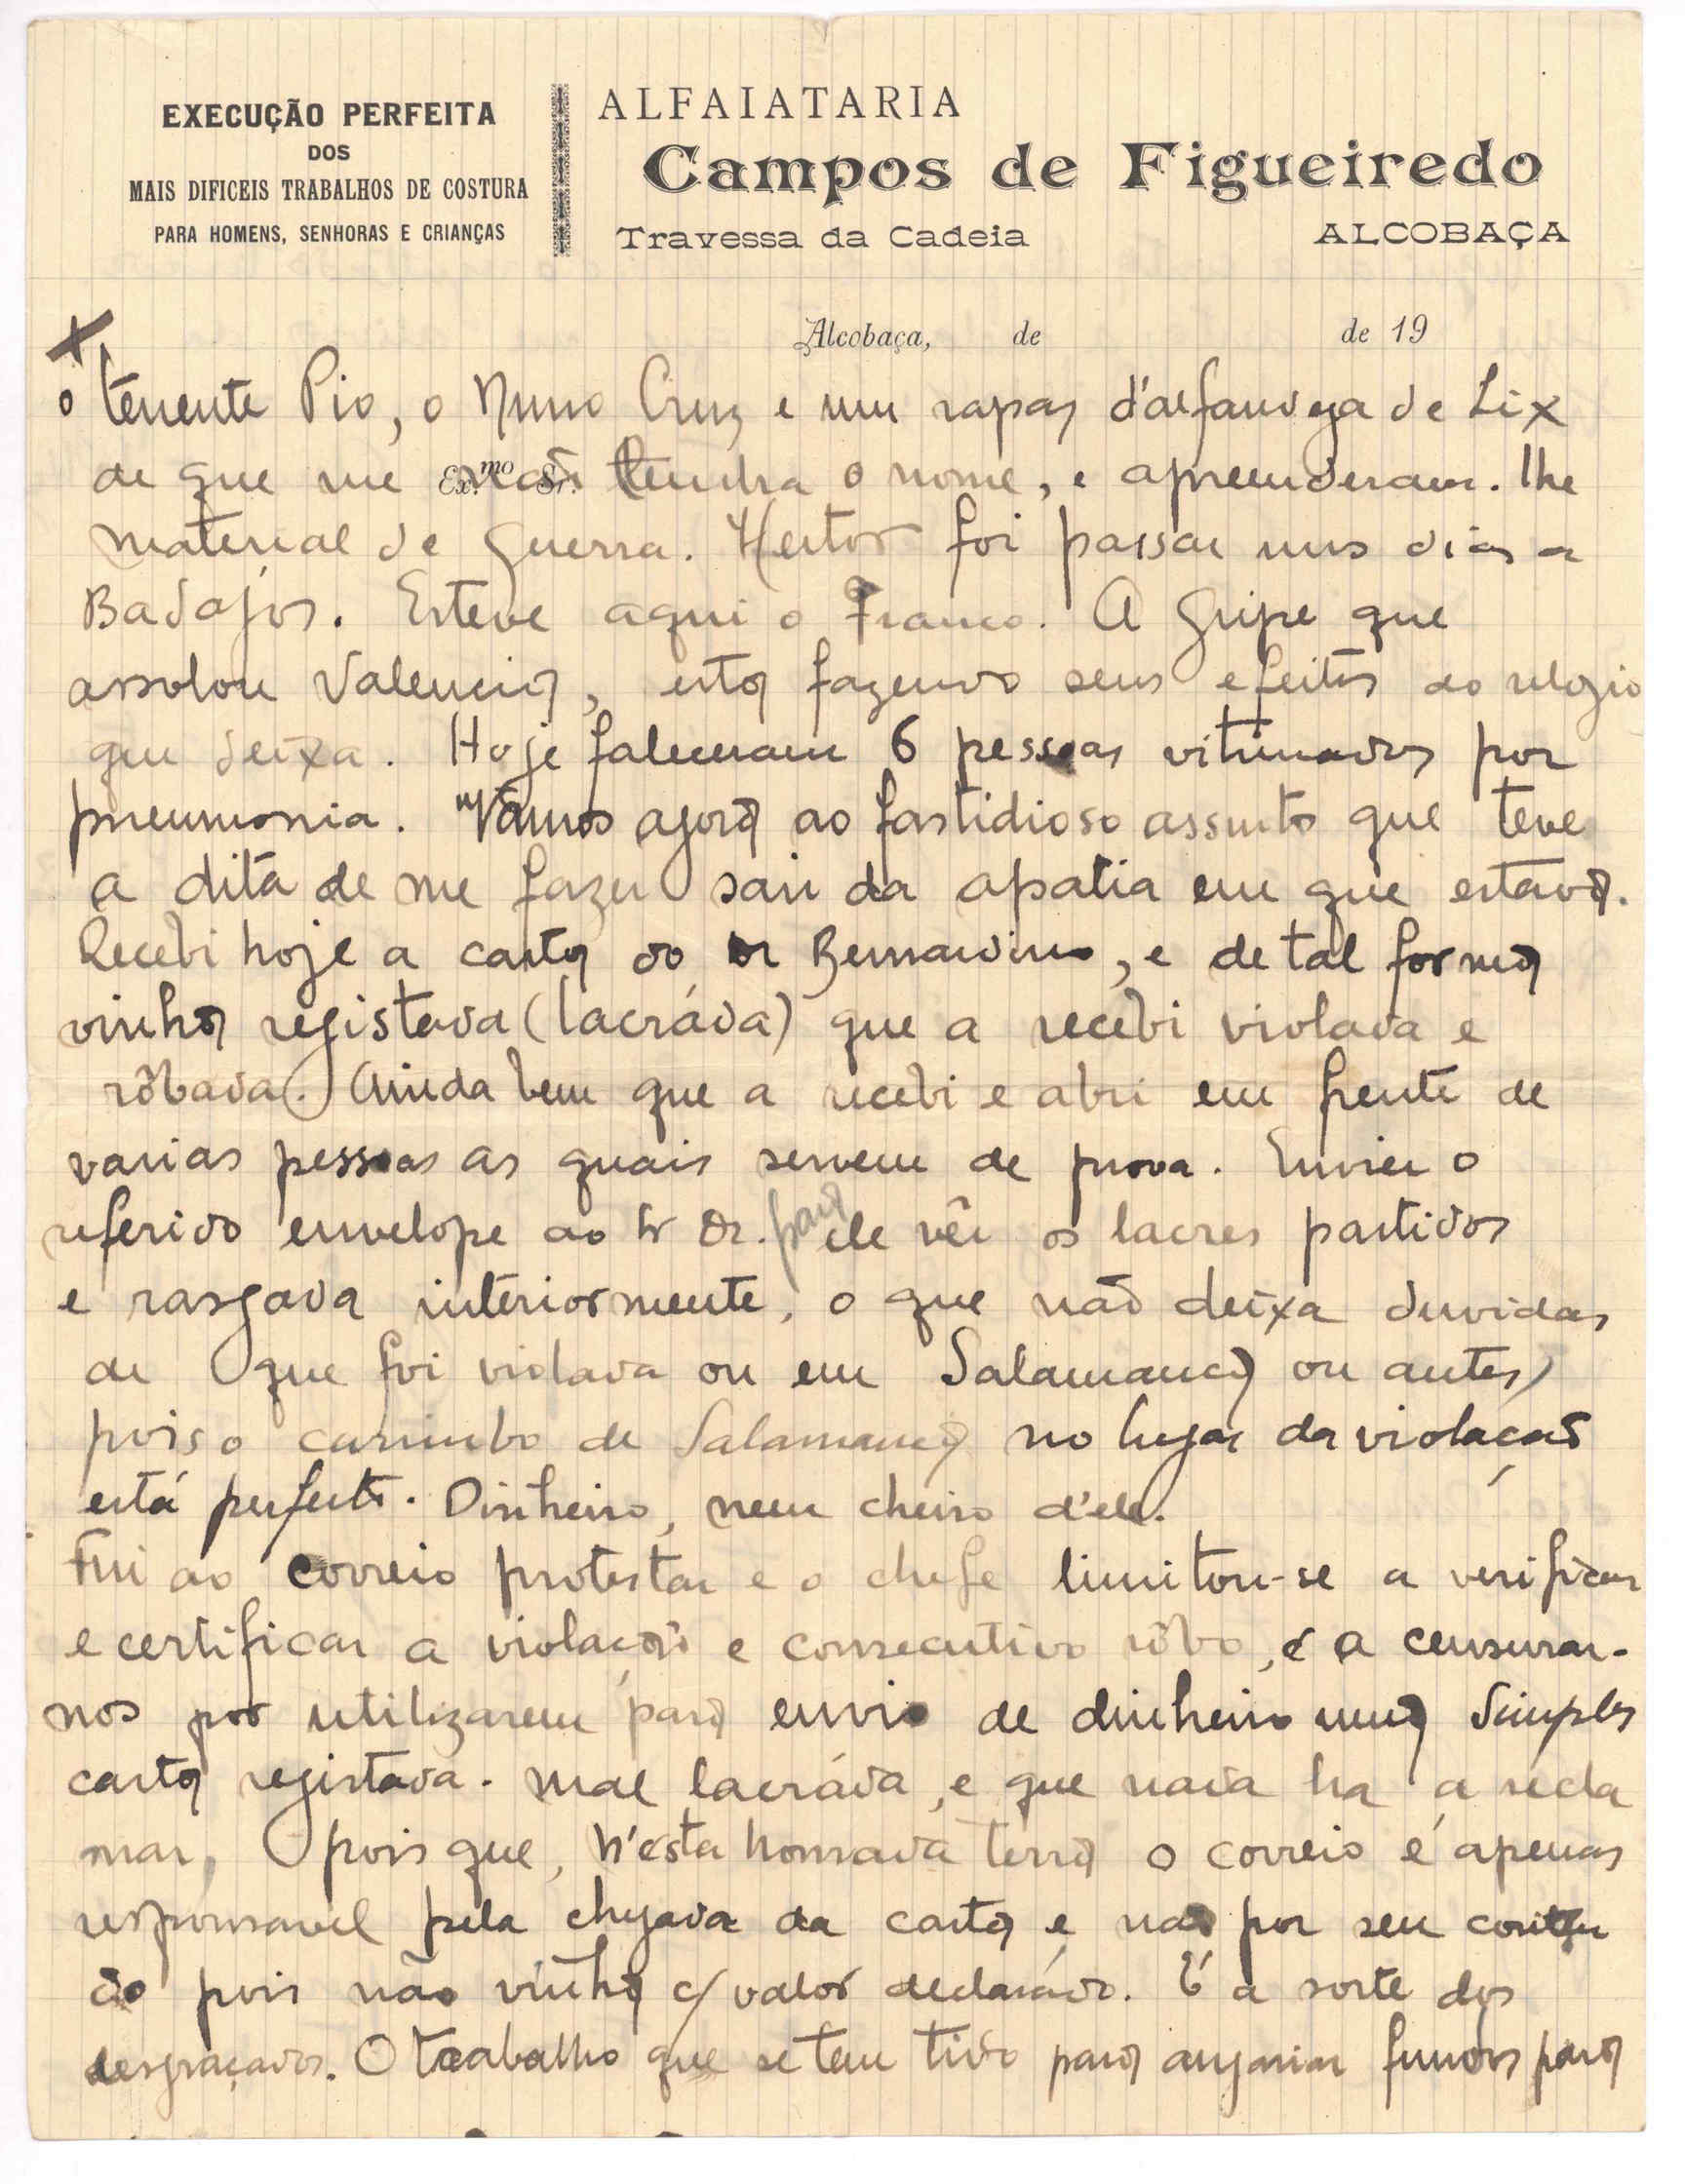 EXECUÇÃO PERFEITA
DOS
MAIS DIFICEIS TRABALHOS DE COSTURA
PARA HOMENS, SENHORAS E CRIANÇAS
ALFAIATARIA
Campos de Figueiredo
Travessa da Cadeia ALCOBAÇA
Alcobaça, de de 19
o tenente Pio, o Nuno Cruz e um rapaz d'alfandega de Lix
de que me não lembra o nome, e apreenderam-lhe
Ex.mo Sr.
material de guerra. Heitor foi passar uns dias a
Badajós. Esteve aqui o Franco. A gripe que
assolou Valencia, está fazendo seus efeitos ao relogio
que deixa. Hoje faleceram 6 pessoas vitimadas por
pneumonia. Vâmos agora ao fastidioso assunto que teve
a dita de me fazer sair da apatia em que estava.
Recebi hoje a carta do Sr Bernardino, e de tal forma
vinha registada (lacráda) que a recebi violada e
rôbada. Ainda bem que a recebi e abri em frente de
varias pessoas as quais servem de prova. Enviei o
referido envelope ao Sr Dr. para ele vêr os lacres partidos
e rasgada interiormente, o que não deixa duvidas
de que foi violada ou em Salamanca ou antes,
pois o carimbo de Salamanca no lugar da violação
está perfeito. Dinheiro, nem cheiro d'ele.
Fui ao correio protestar e o chefe limitou-se a verificar
e certificar a violação e consecutivo rôbo, e a censurar-
nos por utilizarem para envio de dinheiro uma simples
carta registada. mal lacráda, e que nada ha a recla
mar, pois que, n'ésta honrada terra o correio é apenas
responsavel pela chegada da carta e não por seu conteu
do pois não vinha c/ valor declarádo. É a sorte dos
desgraçados. O trabalho que se tem tido para angariar fundos para